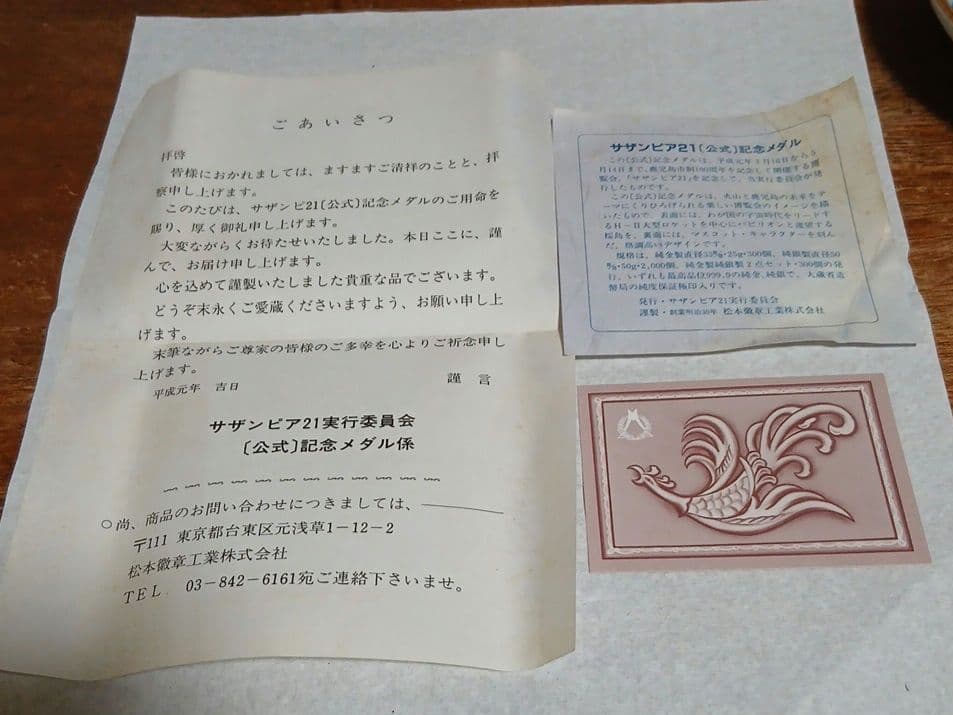 ごあいさつ
拝啓
皆様におかれましては、ますますご清祥のことと、拝
察申し上げます。
このたびは、サザンピ21〔公式〕記念メダルのご用命を
賜り、厚く御礼申し上げます。
大変ながらくお待たせいたしました。本日ここに、謹
んで、お届け申し上げます。
心を込めて謹製いたしました貴重な品でございます。
どうぞ末永くご愛蔵くださいますよう、お願い申し上
げます。
末筆ながらご尊家の皆様のご多幸を心よりご祈念申し
上げます。
平成元年 吉日 謹言
サザンピア21実行委員会
〔公式〕記念メダル係
○尚、商品のお問い合わせにつきましては、
〒111 東京都台東区元浅草1-12-2
松本徽章工業株式会社
TEL. 03-842-6161宛ご連絡下さいませ。
サザンピア21〔公式〕記念メダル
この〔公式〕記念メダルは、平成元年3月18日から5
月14日まで、鹿児島市制100周年を記念して開催する博
覧会、「サザンピア21」を記念して、当実行委員会が発
行したものです。
この〔公式〕記念メダルは、火山と鹿児島の未来をテ
ーマにくりひろげられる楽しい博覧会のイメージを描
いたもので、表面には、わが国の宇宙時代をリードす
るH-II大型ロケットを中心にパビリオンと遠望する
桜島を、裏面には、マスコット・キャラクターを刻ん
だ、格調高いデザインです。
規格は、純金製直径33㎜・25g・300個、純銀製直径50
㎜・50g・2,000個、純金製純銀製2点セット・300個の発
行。いずれも最高品位999.9の純金、純銀で、大蔵省造
幣局の純度保証極印入りです。
発行・サザンピア21実行委員会
謹製・創業明治30年 松本徽章工業株式会社